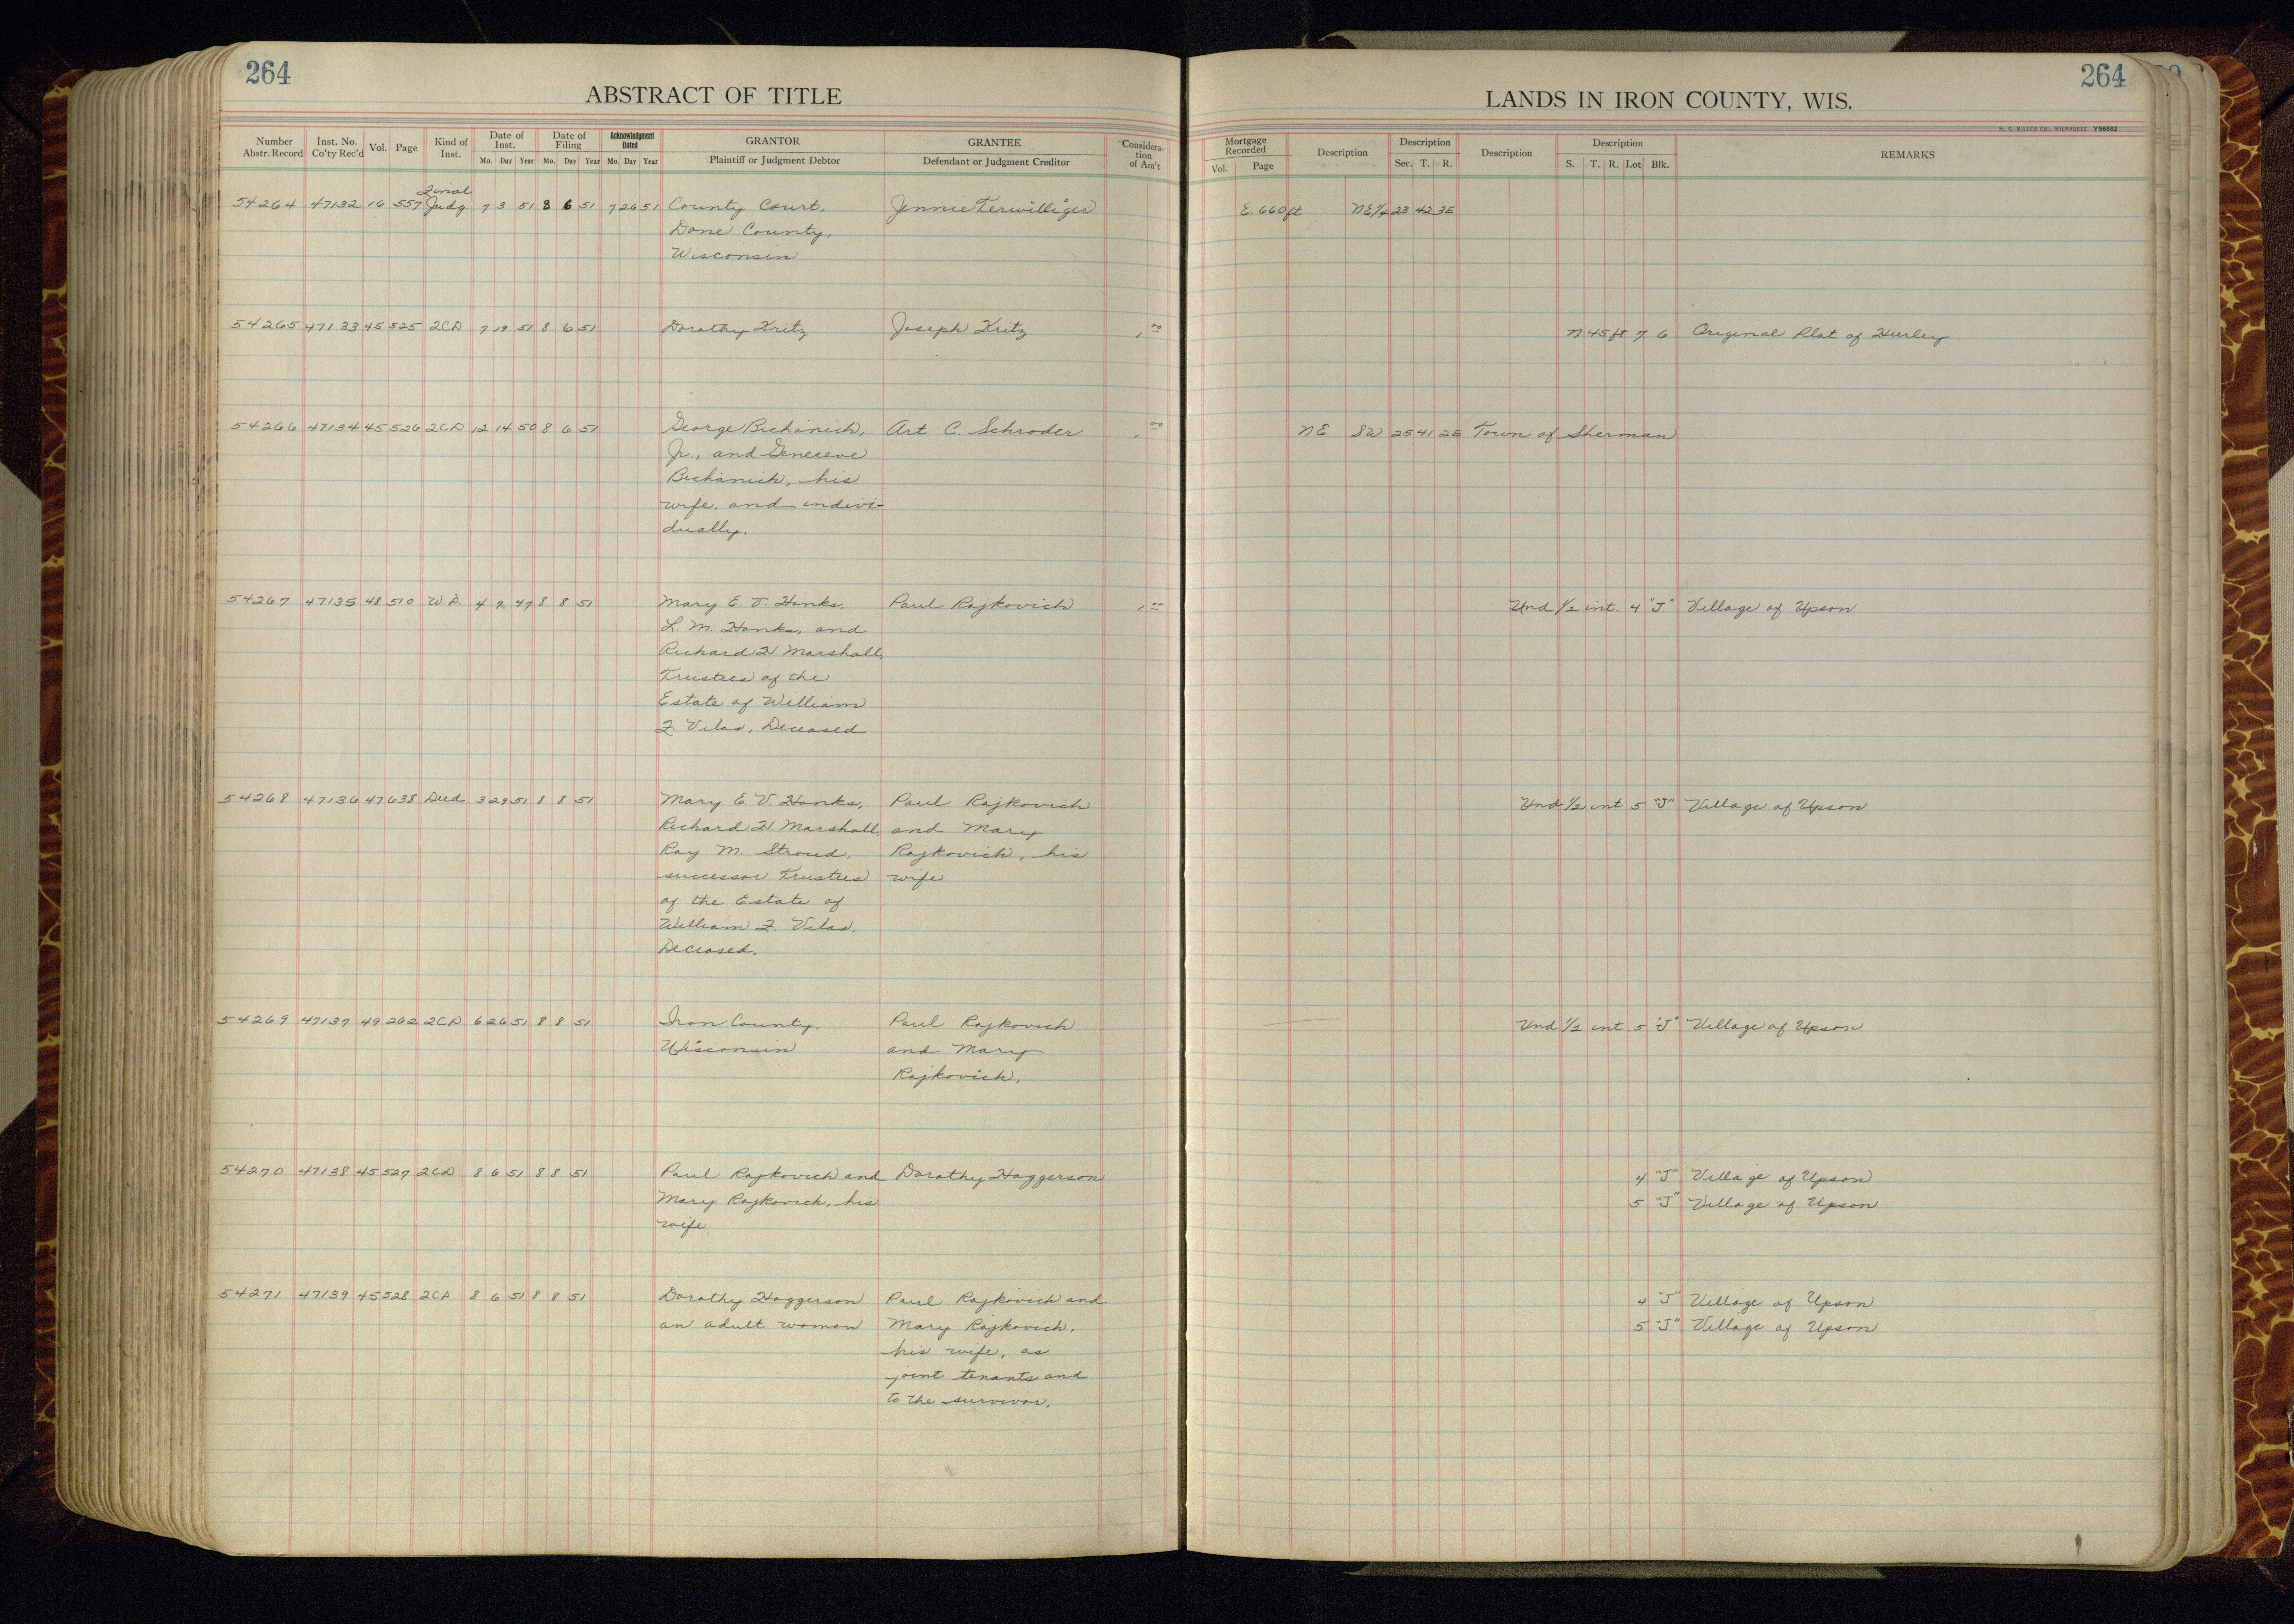 264
ABSTRACT OF TITLE
Number Abstr. Record
Inst. No. Co'ty Rec'd
Vol.
Page
Kind of Inst.
Date of Inst. Mo. Day Year
Date of Filing Mo. Day Year
Acknowledgment Dated Mo. Day Year
GRANTOR
Plaintiff or Judgment Debtor
GRANTEE
Defendant or Judgment Creditor
Considera-
tion
of Am't
Final
54264 47132 16 557 Judg 7 3 51 8 6 51 7 26 51 County Court, Jennie Terwilliger
Dane County,
Wisconsin
54265 47133 45 525 2CD 7 19 51 8 6 51 Dorothy Kritz Joseph Kritz 1.00
54266 47134 45 526 2CD 12 14 50 8 6 51 George Bichanich, Art C. Schroder 1.00
Jr., and Genevieve
Bichanich, his
wife, and indivi-
dually.
54267 47135 48 510 W.D. 4 2 47 8 8 51 Mary E. V. Hanks, Paul Rajkovich 1.00
L. M. Hanks, and
Richard H. Marshall,
Trustees of the
Estate of William
F. Vilas, Deceased
54268 47136 47 638 Deed 3 29 51 8 8 51 Mary E. V. Hanks, Paul Rajkovich
Richard H. Marshall, and Mary
Ray M. Stroud, Rajkovich, his
successor Trustees wife
of the Estate of
William F. Vilas,
Deceased.
54269 47137 49 262 2CD 6 26 51 8 8 51 Iron County, Paul Rajkovich
Wisconsin and Mary
Rajkovich.
54270 47138 45 527 2CD 8 6 51 8 8 51 Paul Rajkovich and Dorothy Haggerson
Mary Rajkovich, his
wife.
54271 47139 45 528 2CD 8 6 51 8 8 51 Dorothy Haggerson Paul Rajkovich and
an adult woman Mary Rajkovich,
his wife, as
joint tenants and
to the survivor.
264
LANDS IN IRON COUNTY, WIS.
H. C. MILLER CO., MILWAUKEE Y56882
Mortgage Recorded Vol. Page
Description
Description Sec. T. R.
Description
Description S. T. R. Lot Blk.
REMARKS
E. 660 ft NE 1/4 23 42 3E
N 45 ft 7 6 Original Plat of Hurley
NE SW 25 41 2E Town of Sherman
Und 1/2 int. 4 "J" Village of Upson
Und 1/2 int 5 "J" Village of Upson
Und 1/2 int 5 "J" Village of Upson
4 "J" Village of Upson
5 "J" Village of Upson
4 "J" Village of Upson
5 "J" Village of Upson